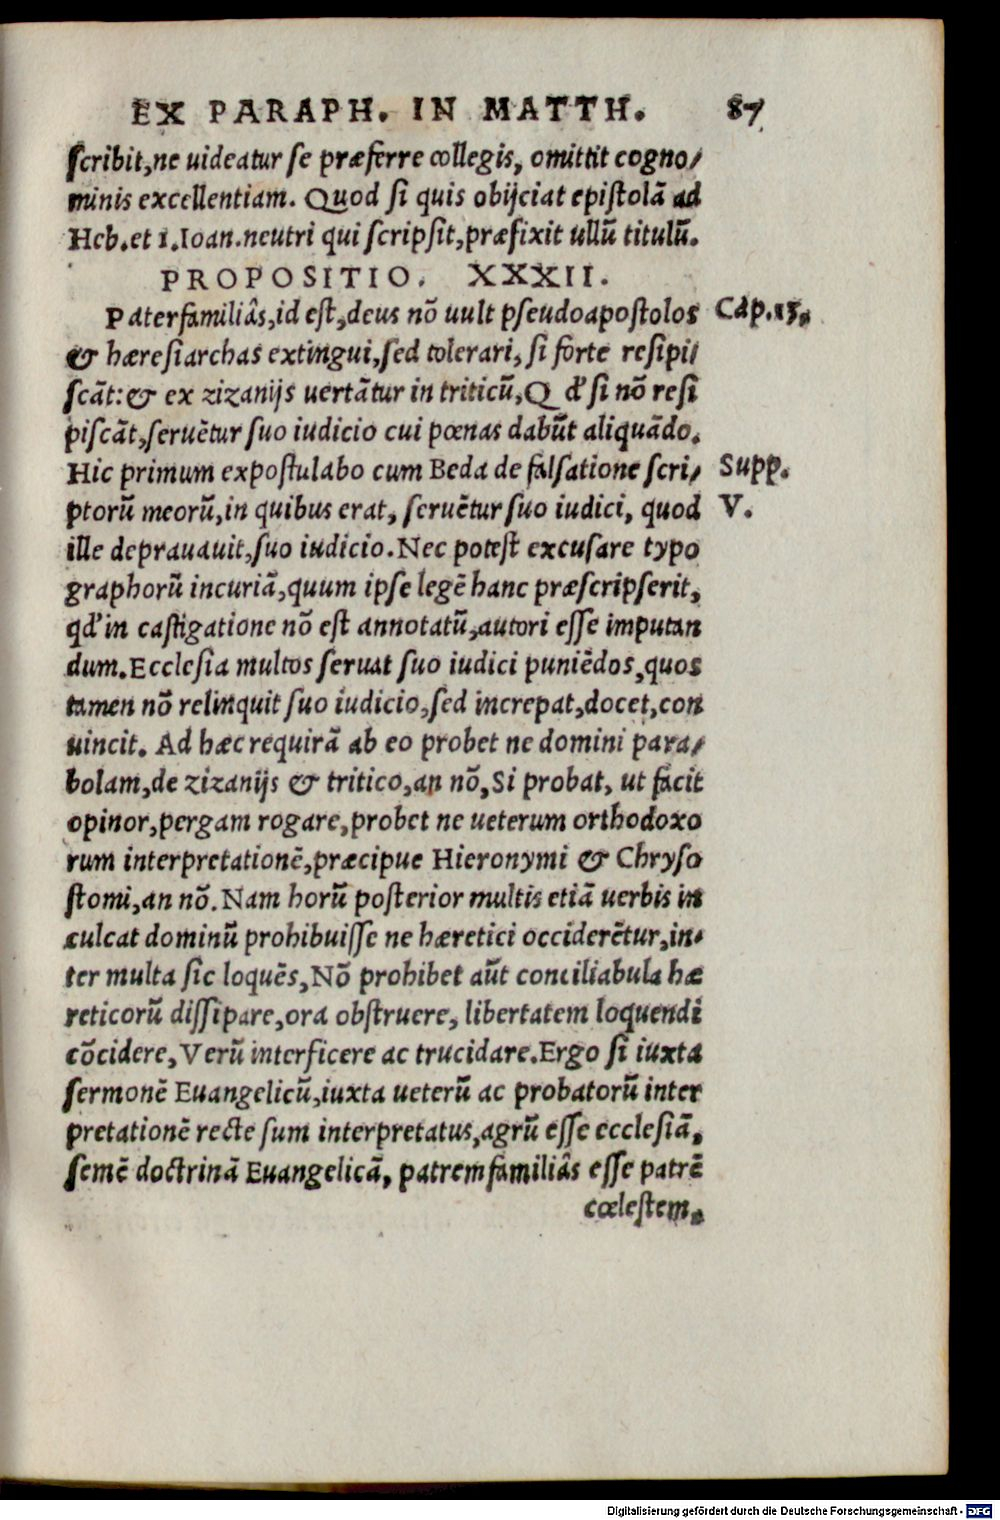 EX PARAPH. IN MATTH. 87
scribit, ne uideatur se præferre collegis, omittit cogno/
minis excellentiam. Quod si quis obijciat epistolā ad
Heb. et 1. Ioan. neutri qui scripsit, præfixit ullū titulū.
PROPOSITIO. XXXII.
Paterfamiliâs, id est, deus nō uult pseudoapostolos Cap. 13.
& hæresiarchas extingui, sed tolerari, si forte resipi/
scāt: & ex zizanijs uertātur in triticū, Qđ si nō resi
piscāt, seruētur suo iudicio cui pœnas dabūt aliquādo.
Hic primum expostulabo cum Beda de falsatione scri/ Supp.
ptorū meorū, in quibus erat, seruētur suo iudici, quod V.
ille deprauauit, suo iudicio. Nec potest excusare typo
graphorū incuriā, quum ipse legē hanc præscripserit,
qđ in castigatione nō est annotatū, autori esse imputan
dum. Ecclesia multos seruat suo iudici puniēdos, quos
tamen nō relinquit suo iudicio, sed increpat, docet, con
uincit. Ad hæc requirā ab eo probet ne domini para/
bolam, de zizanijs & tritico, an nō, Si probat, ut facit
opinor, pergam rogare, probet ne ueterum orthodoxo
rum interpretationē, præcipue Hieronymi & Chryso
stomi, an nō. Nam horū posterior multis etiā uerbis in
culcat dominū prohibuisse ne hæretici occiderētur, in/
ter multa sic loquēs, Nō prohibet aūt conciliabula hæ
reticorū dissipare, ora obstruere, libertatem loquendi
cōcidere, Verū interficere ac trucidare. Ergo si iuxta
sermonē Euangelicū, iuxta ueterū ac probatorū inter
pretationē recte sum interpretatus, agrū esse ecclesiā,
semē doctrinā Euangelicā, patremfamiliâs esse patrē
cœlestem,
Digitalisierung gefördert durch die Deutsche Forschungsgemeinschaft - DFG